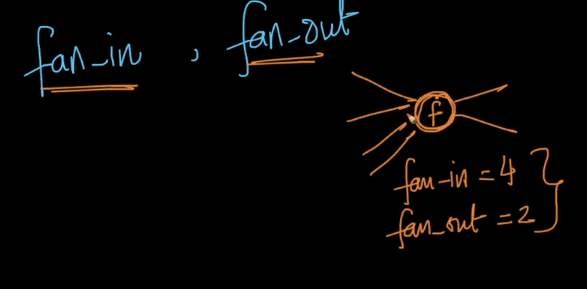 fan-in , fan-out
f
fan-in = 4
fan-out = 2